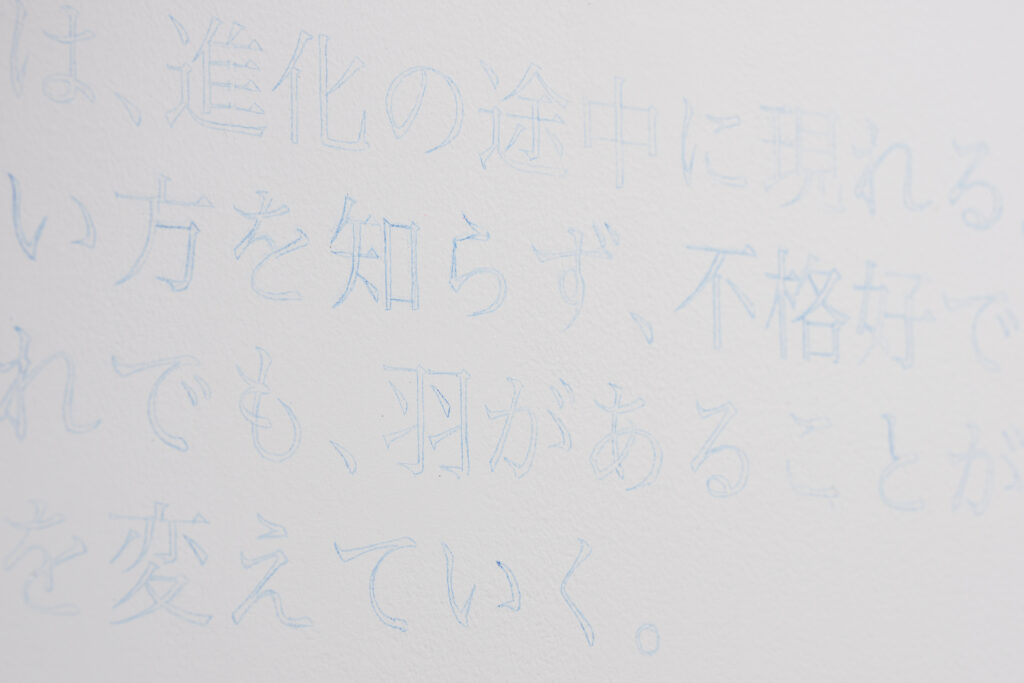 は、進化の途中に現れる
い方を知らず、不格好で
れでも、羽があることが
を変えていく。